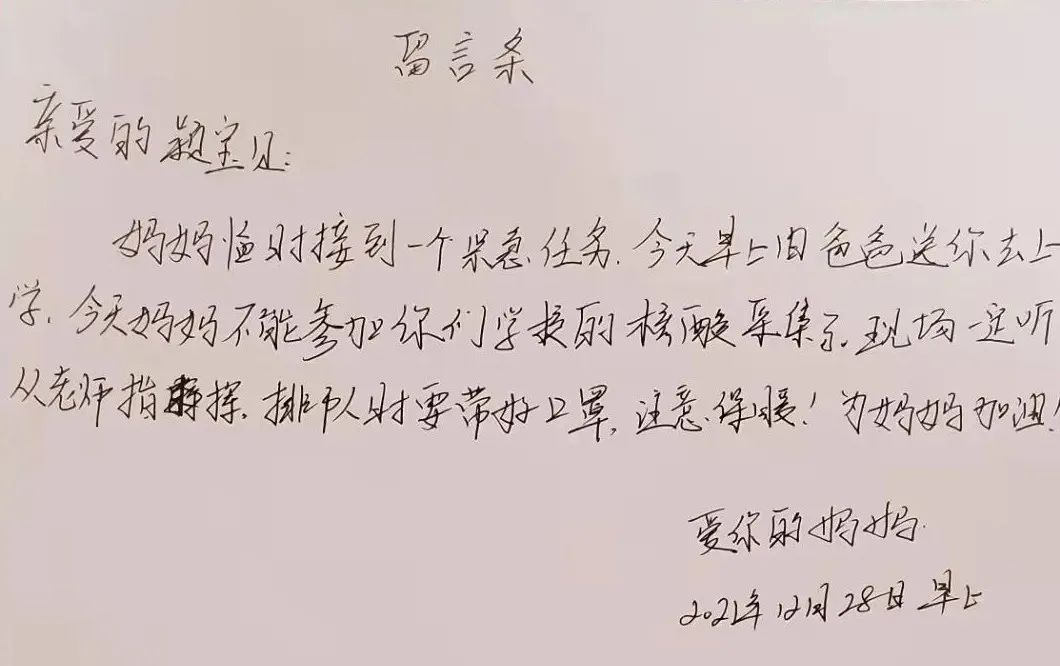 留言条
亲爱的颖宝贝:
妈妈临时接到一个紧急任务.今天早上由爸爸送你去上
学.今天妈妈不能参加你们学校的核酸采集了.现场一定听
从老师指挥.排队时要带好口罩,注意保暖!为妈妈加油!
爱你的妈妈.
2021年12月28日早上